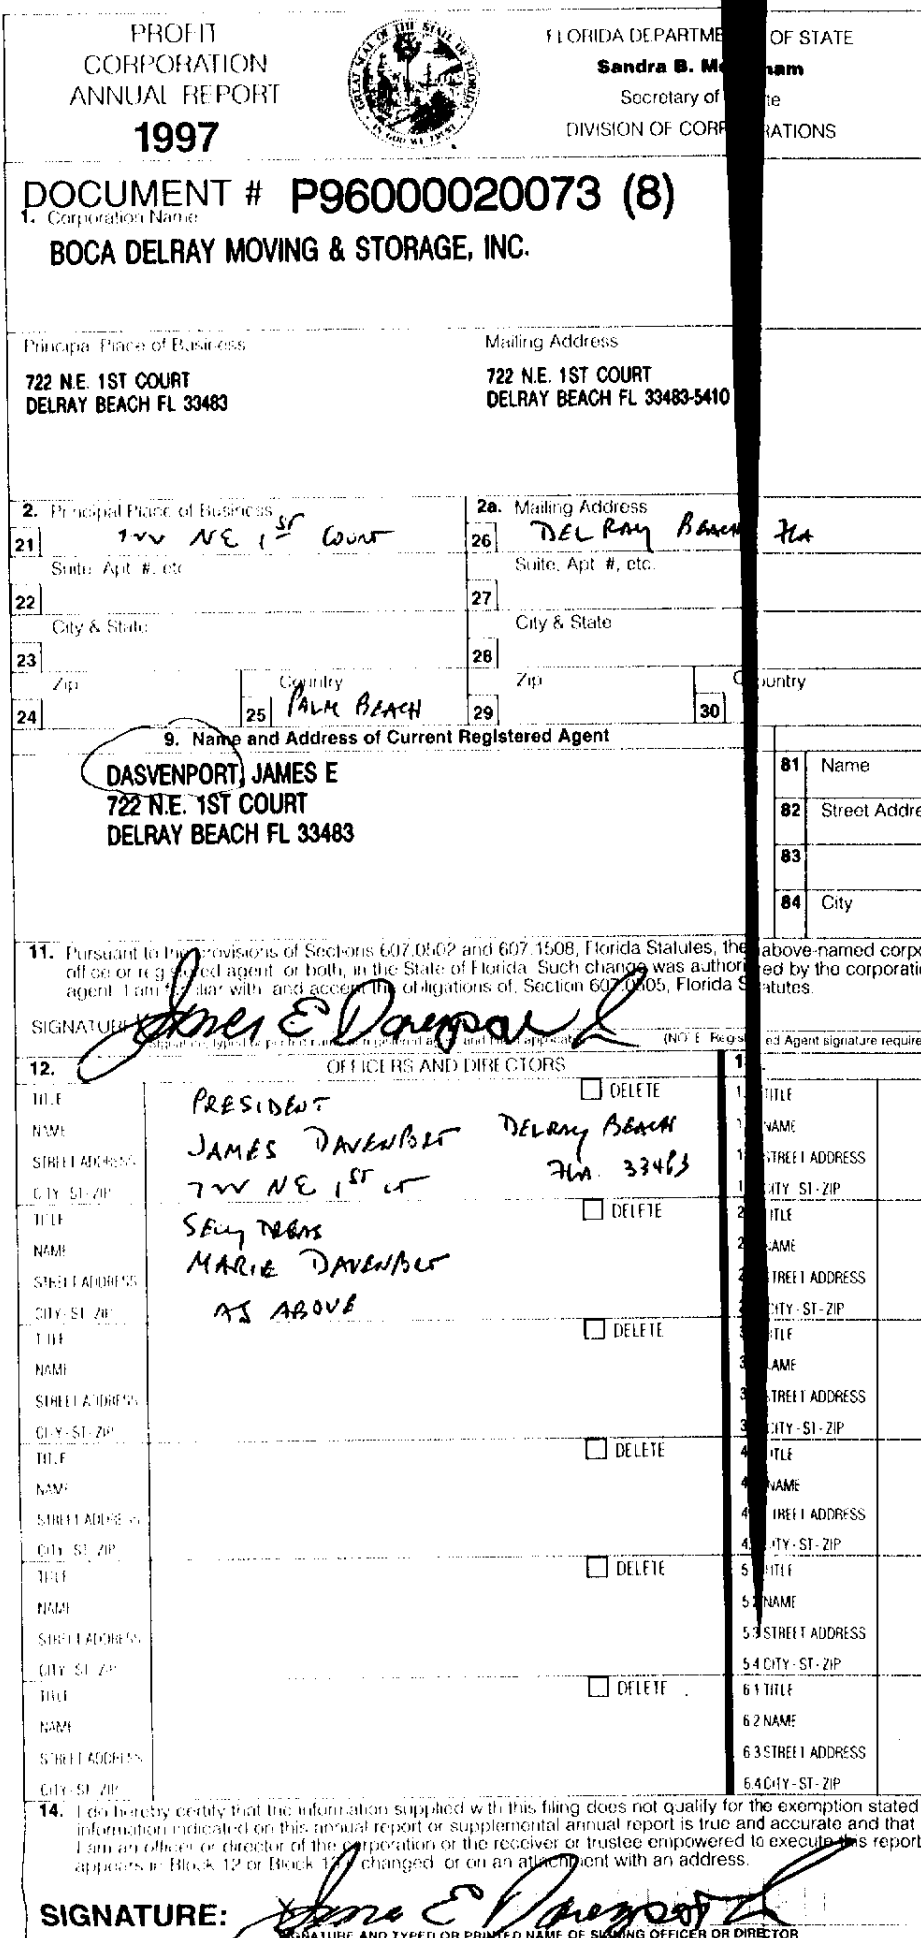 PROFIT
CORPORATION
ANNUAL REPORT
1997
GREAT SEAL OF THE STATE OF FLORIDA
IN GOD WE TRUST
FLORIDA DEPARTME OF STATE
Sandra B. M ham
Secretary of te
DIVISION OF CORP RATIONS
DOCUMENT # P96000020073 (8)
1. Corporation Name
BOCA DELRAY MOVING & STORAGE, INC.
Principal Place of Business
Mailing Address
722 N.E. 1ST COURT
DELRAY BEACH FL 33483
722 N.E. 1ST COURT
DELRAY BEACH FL 33483-5410
2. Principal Place of Business
2a. Mailing Address
21 722 NE 1ST COURT
26 DELRAY BEACH FLA
Suite, Apt. #, etc.
Suite, Apt. #, etc.
22
27
City & State
City & State
23
28
Zip
Country
Zip
Country
24
25 PALM BEACH
29
30
9. Name and Address of Current Registered Agent
DASVENPORT, JAMES E
722 N.E. 1ST COURT
DELRAY BEACH FL 33483
81 Name
82 Street Addre
83
84 City
11. Pursuant to the provisions of Sections 607.0502 and 607.1508, Florida Statutes, the above-named corpo
office or registered agent, or both, in the State of Florida. Such change was authorized by the corporati
agent. I am familiar with, and accept the obligations of, Section 607.0505, Florida Statutes.
SIGNATURE James E Davenport
(NOTE: Registered Agent signature require
12. OFFICERS AND DIRECTORS
TITLE PRESIDENT DELETE
NAME JAMES DAVENPORT DELRAY BEACH
STREET ADDRESS 722 NE 1ST CT FLA. 33483
CITY-ST-ZIP
TITLE SECY TREAS DELETE
NAME MARIE DAVENPORT
STREET ADDRESS AS ABOVE
CITY-ST-ZIP
TITLE DELETE
NAME
STREET ADDRESS
CITY-ST-ZIP
TITLE DELETE
NAME
STREET ADDRESS
CITY-ST-ZIP
TITLE DELETE
NAME
STREET ADDRESS
CITY-ST-ZIP
TITLE DELETE
NAME
STREET ADDRESS
CITY-ST-ZIP
TITLE
NAME
STREET ADDRESS
CITY-ST-ZIP
TITLE
NAME
STREET ADDRESS
CITY-ST-ZIP
TITLE
NAME
STREET ADDRESS
CITY-ST-ZIP
TITLE
NAME
STREET ADDRESS
CITY-ST-ZIP
TITLE
5.2 NAME
5.3 STREET ADDRESS
5.4 CITY-ST-ZIP
6.1 TITLE
6.2 NAME
6.3 STREET ADDRESS
6.4 CITY-ST-ZIP
14. I do hereby certify that the information supplied with this filing does not qualify for the exemption stated
information indicated on this annual report or supplemental annual report is true and accurate and that
I am an officer or director of the corporation or the receiver or trustee empowered to execute this report
appears in Block 12 or Block 13 if changed, or on an attachment with an address.
SIGNATURE: James E Davenport
SIGNATURE AND TYPED OR PRINTED NAME OF SIGNING OFFICER OR DIRECTOR